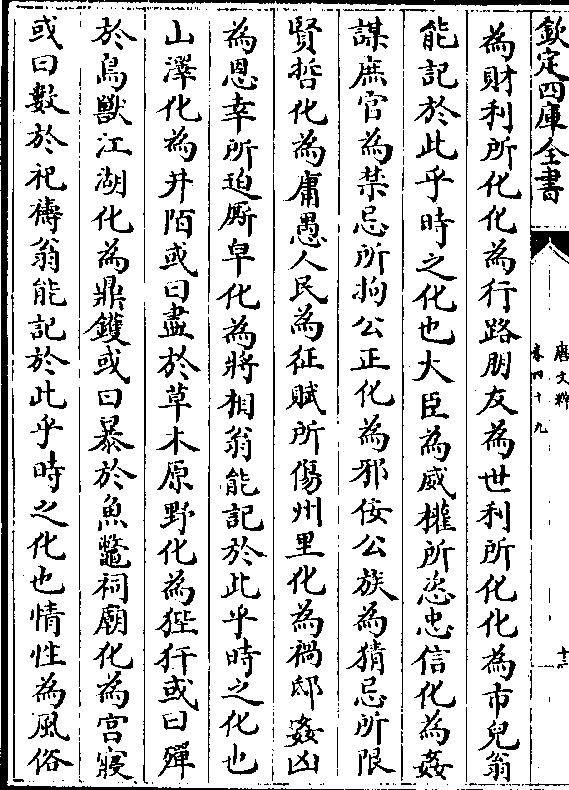 欽定四庫全書
唐文粹
卷四十九
十二
為財利所化化為行路朋友為世利所化化為市兒翁
能記於此乎時之化也大臣為威權所恣忠信化為姦
謀庶官為禁忌所拘公正化為邪佞公族為猜忌所限
賢哲化為庸愚人民為征賦所傷州里化為禍邸姦凶
為恩幸所迫厮皁化為將相翁能記於此乎時之化也
山澤化為井陌或曰盡於草木原野化為狴犴或曰殫
於鳥獸江湖化為鼎鑊或曰暴於魚鼈祠廟化為宫寢
或曰數於祀禱翁能記於此乎時之化也情性為風俗